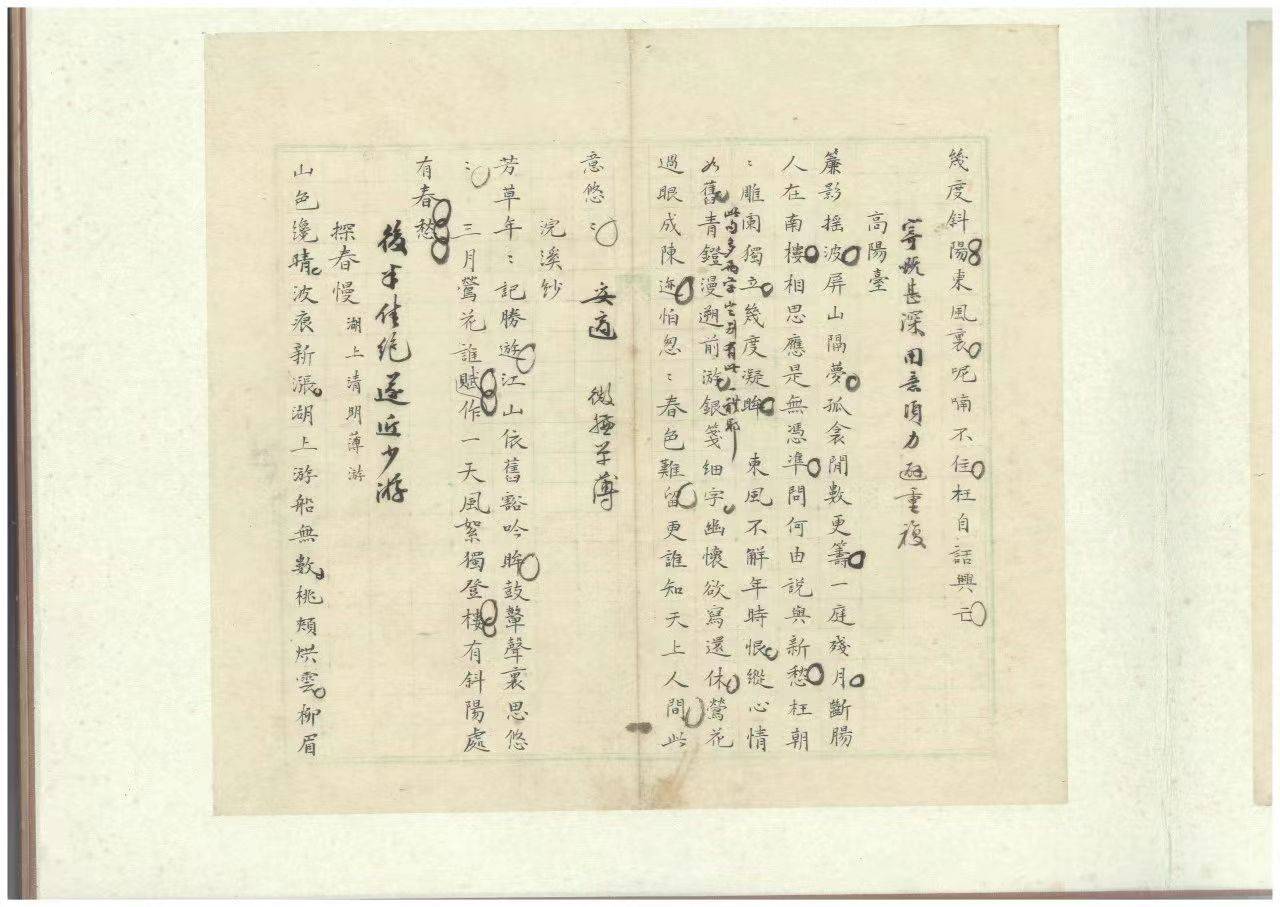 幾度斜陽東風裏呢喃不住枉自話興亡
寄慨甚深用意須力避重複
高陽臺
簾影搖波屏山隔夢孤衾閒數更籌一庭殘月斷腸
人在南樓相思應是無憑準問何由說與新愁枉朝
〻雕闌獨立幾度凝眸　東風不解年時恨縱心情
如舊青鐙漫遡前游銀箋細字幽懷欲寫還休鶯花
此句多兩字豈別有此一體耶
過眼成陳迹怕怱〻春色難留更誰知天上人間此
意悠〻
妥適　微極平薄
浣溪紗
芳草年〻記勝遊江山依舊豁吟眸鼓鼙聲裏思悠
〻　三月鶯花誰賦作一天風絮獨登樓有斜陽處
有春愁
後半佳絕遂近少游
探春慢　湖上清明薄游
山色纔晴波痕新漲湖上游船無數桃頰烘雲柳眉